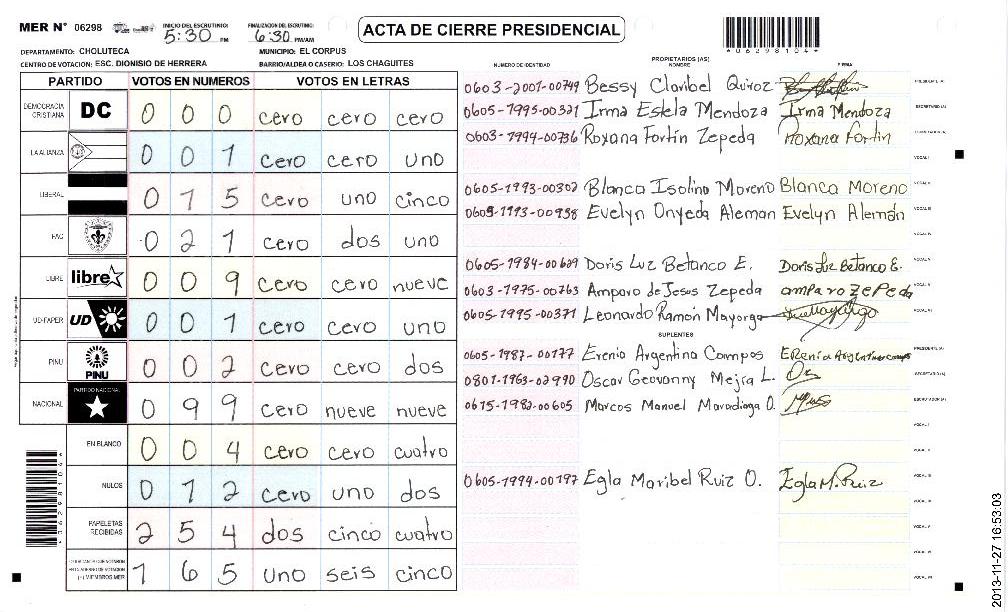 MER N° 06298
INICIO DEL ESCRUTINIO: 5:30 PM
FINALIZACION DEL ESCRUTINIO: 6:30 PM/AM
ACTA DE CIERRE PRESIDENCIAL
*06298104*
DEPARTAMENTO: CHOLUTECA
MUNICIPIO: EL CORPUS
CENTRO DE VOTACION: ESC. DIONISIO DE HERRERA
BARRIO/ALDEA O CASERIO: LOS CHAGUITES
PARTIDO VOTOS EN NUMEROS VOTOS EN LETRAS
DEMOCRACIA CRISTIANA DC 0 0 0 cero cero cero
LA ALIANZA 0 0 1 cero cero uno
LIBERAL 0 1 5 cero uno cinco
PAC 0 2 1 cero dos uno
LIBRE libre 0 0 9 cero cero nueve
UD-FAPER UD 0 0 1 cero cero uno
PINU PINU 0 0 2 cero cero dos
NACIONAL PARTIDO NACIONAL 0 9 9 cero nueve nueve
EN BLANCO 0 0 4 cero cero cuatro
NULOS 0 1 2 cero uno dos
PAPELETAS RECIBIDAS 2 5 4 dos cinco cuatro
(+) MIEMBROS MER 1 6 5 uno seis cinco
NUMERO DE IDENTIDAD PROPIETARIOS (AS) NOMBRE FIRMA
0603-2001-00749 Bessy Claribel Quiroz PRESIDENTE (A)
0605-1995-00321 Irma Estela Mendoza Irma Mendoza SECRETARIO (A)
0603-1994-00736 Roxana Fortín Zepeda Roxana Fortin ESCRUTADOR (A)
VOCAL I
0605-1993-00302 Blanca Isolina Moreno Blanca Moreno VOCAL II
0605-1993-00958 Evelyn Onyeda Aleman Evelyn Alemán VOCAL III
VOCAL IV
0605-1984-00629 Doris Luz Betanco E. Doris Luz Betanco E. VOCAL V
0603-1975-00763 Amparo de Jesus Zepeda amparo ZePeda
0605-1995-00371 Leonardo Ramon Mayorga
SUPLENTES
0605-1987-00177 Erenia Argentina Campos ERenia Argentina campos PRESIDENTE (A)
0801-1963-02990 Oscar Geovanny Mejia L. SECRETARIO (A)
0615-1982-00605 Marcos Manuel Maradiaga O. ESCRUTADOR (A)
VOCAL I
VOCAL II
0605-1994-00197 Egla Maribel Ruiz O. Egla M. Ruiz VOCAL III
VOCAL IV
VOCAL V
2013-11-27 16:53:03